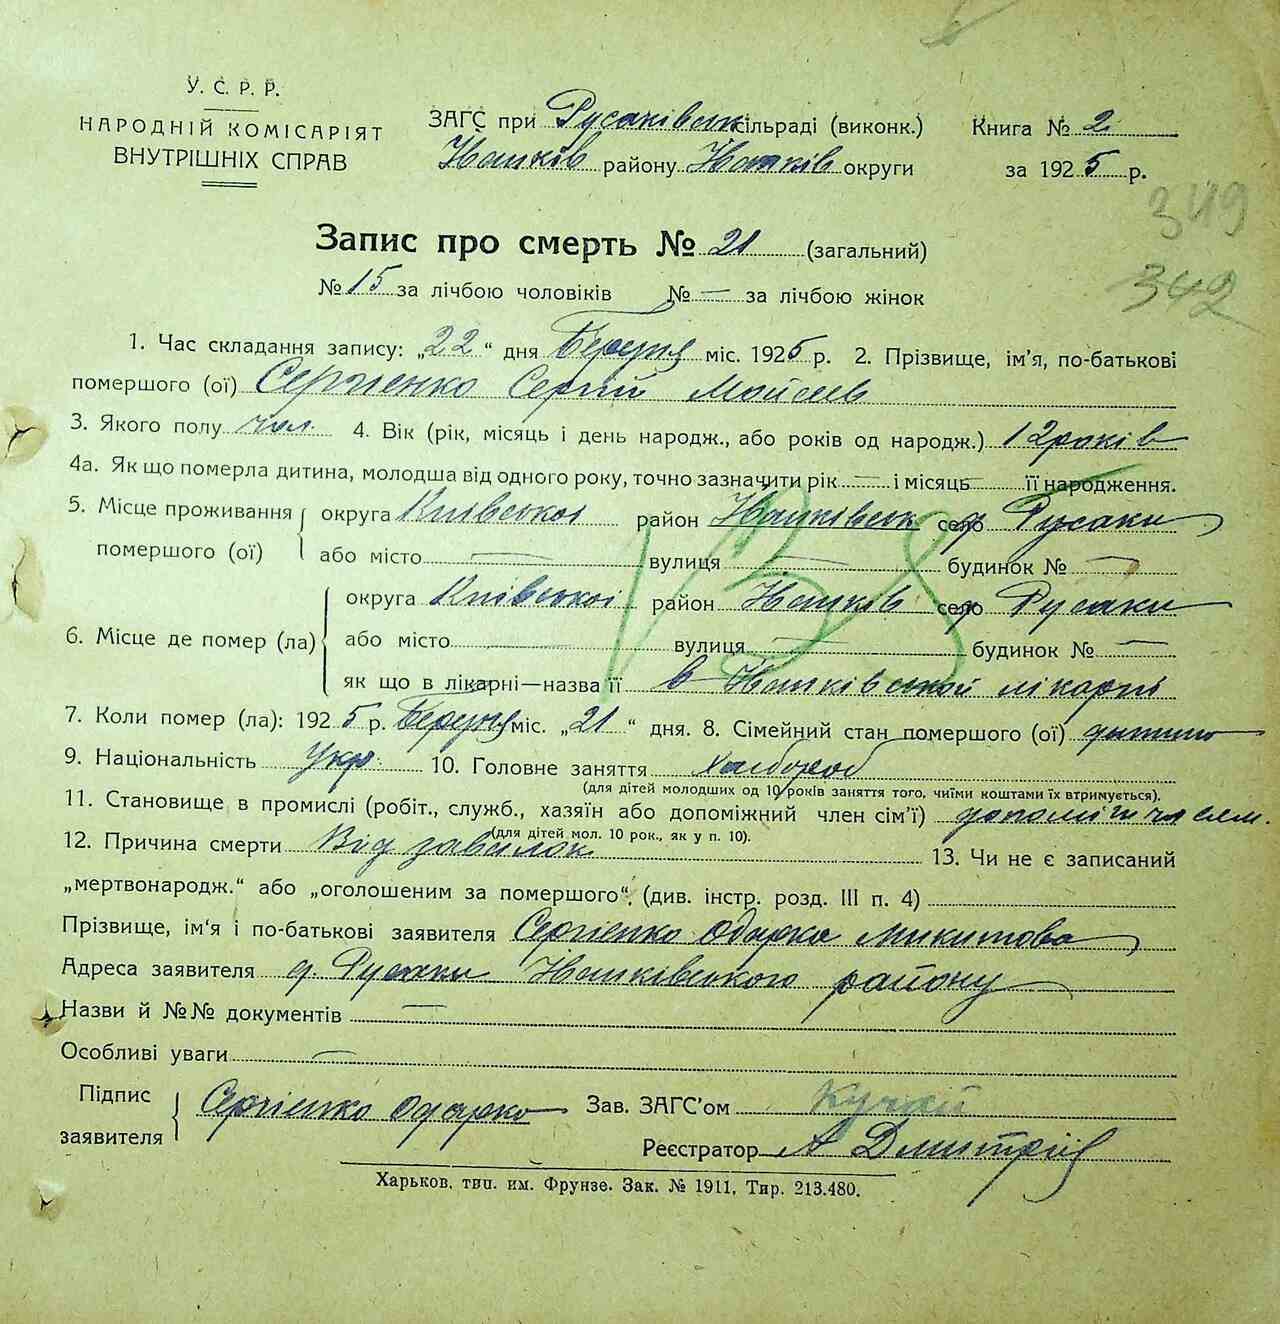 У. С. Р. Р.
НАРОДНІЙ КОМІСАРІЯТ
ВНУТРІШНІХ СПРАВ
ЗАГС при Русаківськ сільраді (виконк.)
району округи
Книга № 2
за 1925 р.
349
342
Запис про смерть № 21 (загальний)
№ 15 за лічбою чоловіків № — за лічбою жінок
1. Час складання запису: „22“ дня Березня міс. 1925 р. 2. Прізвище, ім'я, по-батькові
помершого (ої) Сергієнко Сергий Мойсеев
3. Якого полу чол. 4. Вік (рік, місяць і день народж., або років од народж.) 12 років
4а. Як що померла дитина, молодша від одного року, точно зазначити рік — і місяць — її народження.
5. Місце проживання помершого (ої) { округа Київської район село д Русаки
або місто — вулиця — будинок № —
6. Місце де помер (ла) { округа Київської район село д Русаки
або місто — вулиця — будинок № —
як що в лікарні—назва її в лікарні
7. Коли помер (ла): 1925 р. Березня міс. „21“ дня. 8. Сімейний стан помершого (ої) дитина
9. Національність Укр. 10. Головне заняття хлібороб
(для дітей молодших од 10 років заняття того, чиїми коштами їх втримується).
11. Становище в промислі (робіт., служб., хазяїн або допоміжний член сім'ї)
(для дітей мол. 10 рок., як у п. 10).
12. Причина смерти Від 13. Чи не є записаний
„мертвонародж.“ або „оголошеним за помершого“, (див. інстр. розд. III п. 4)
Прізвище, ім'я і по-батькові заявителя Сергієнко Одарка Микитова
Адреса заявителя д. Русаки району
Назви й №№ документів —
Особливі уваги —
Підпис заявителя { Сергієнко Одарка Зав. ЗАГС'ом
Реєстратор А Дмитрів
Харьков, тип. им. Фрунзе. Зак. № 1911, Тир. 213.480.